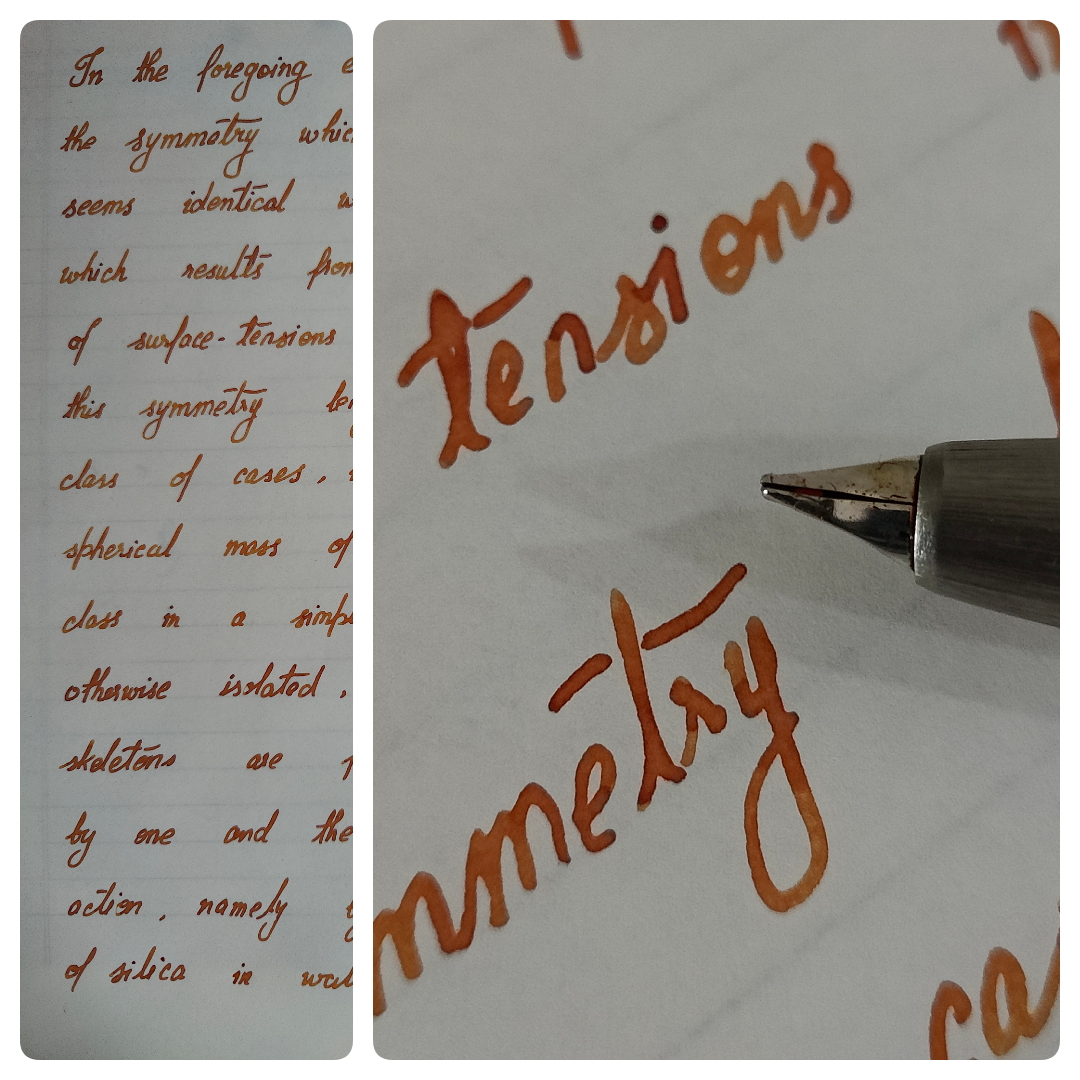 In the foregoing
the symmetry
seems identical
which results
of surface-tensions
this symmetry
class of cases,
spherical mass of
class in a
otherwise isolated,
skeletons are
by one and the
action, namely
of silica in
tensions
mmetry